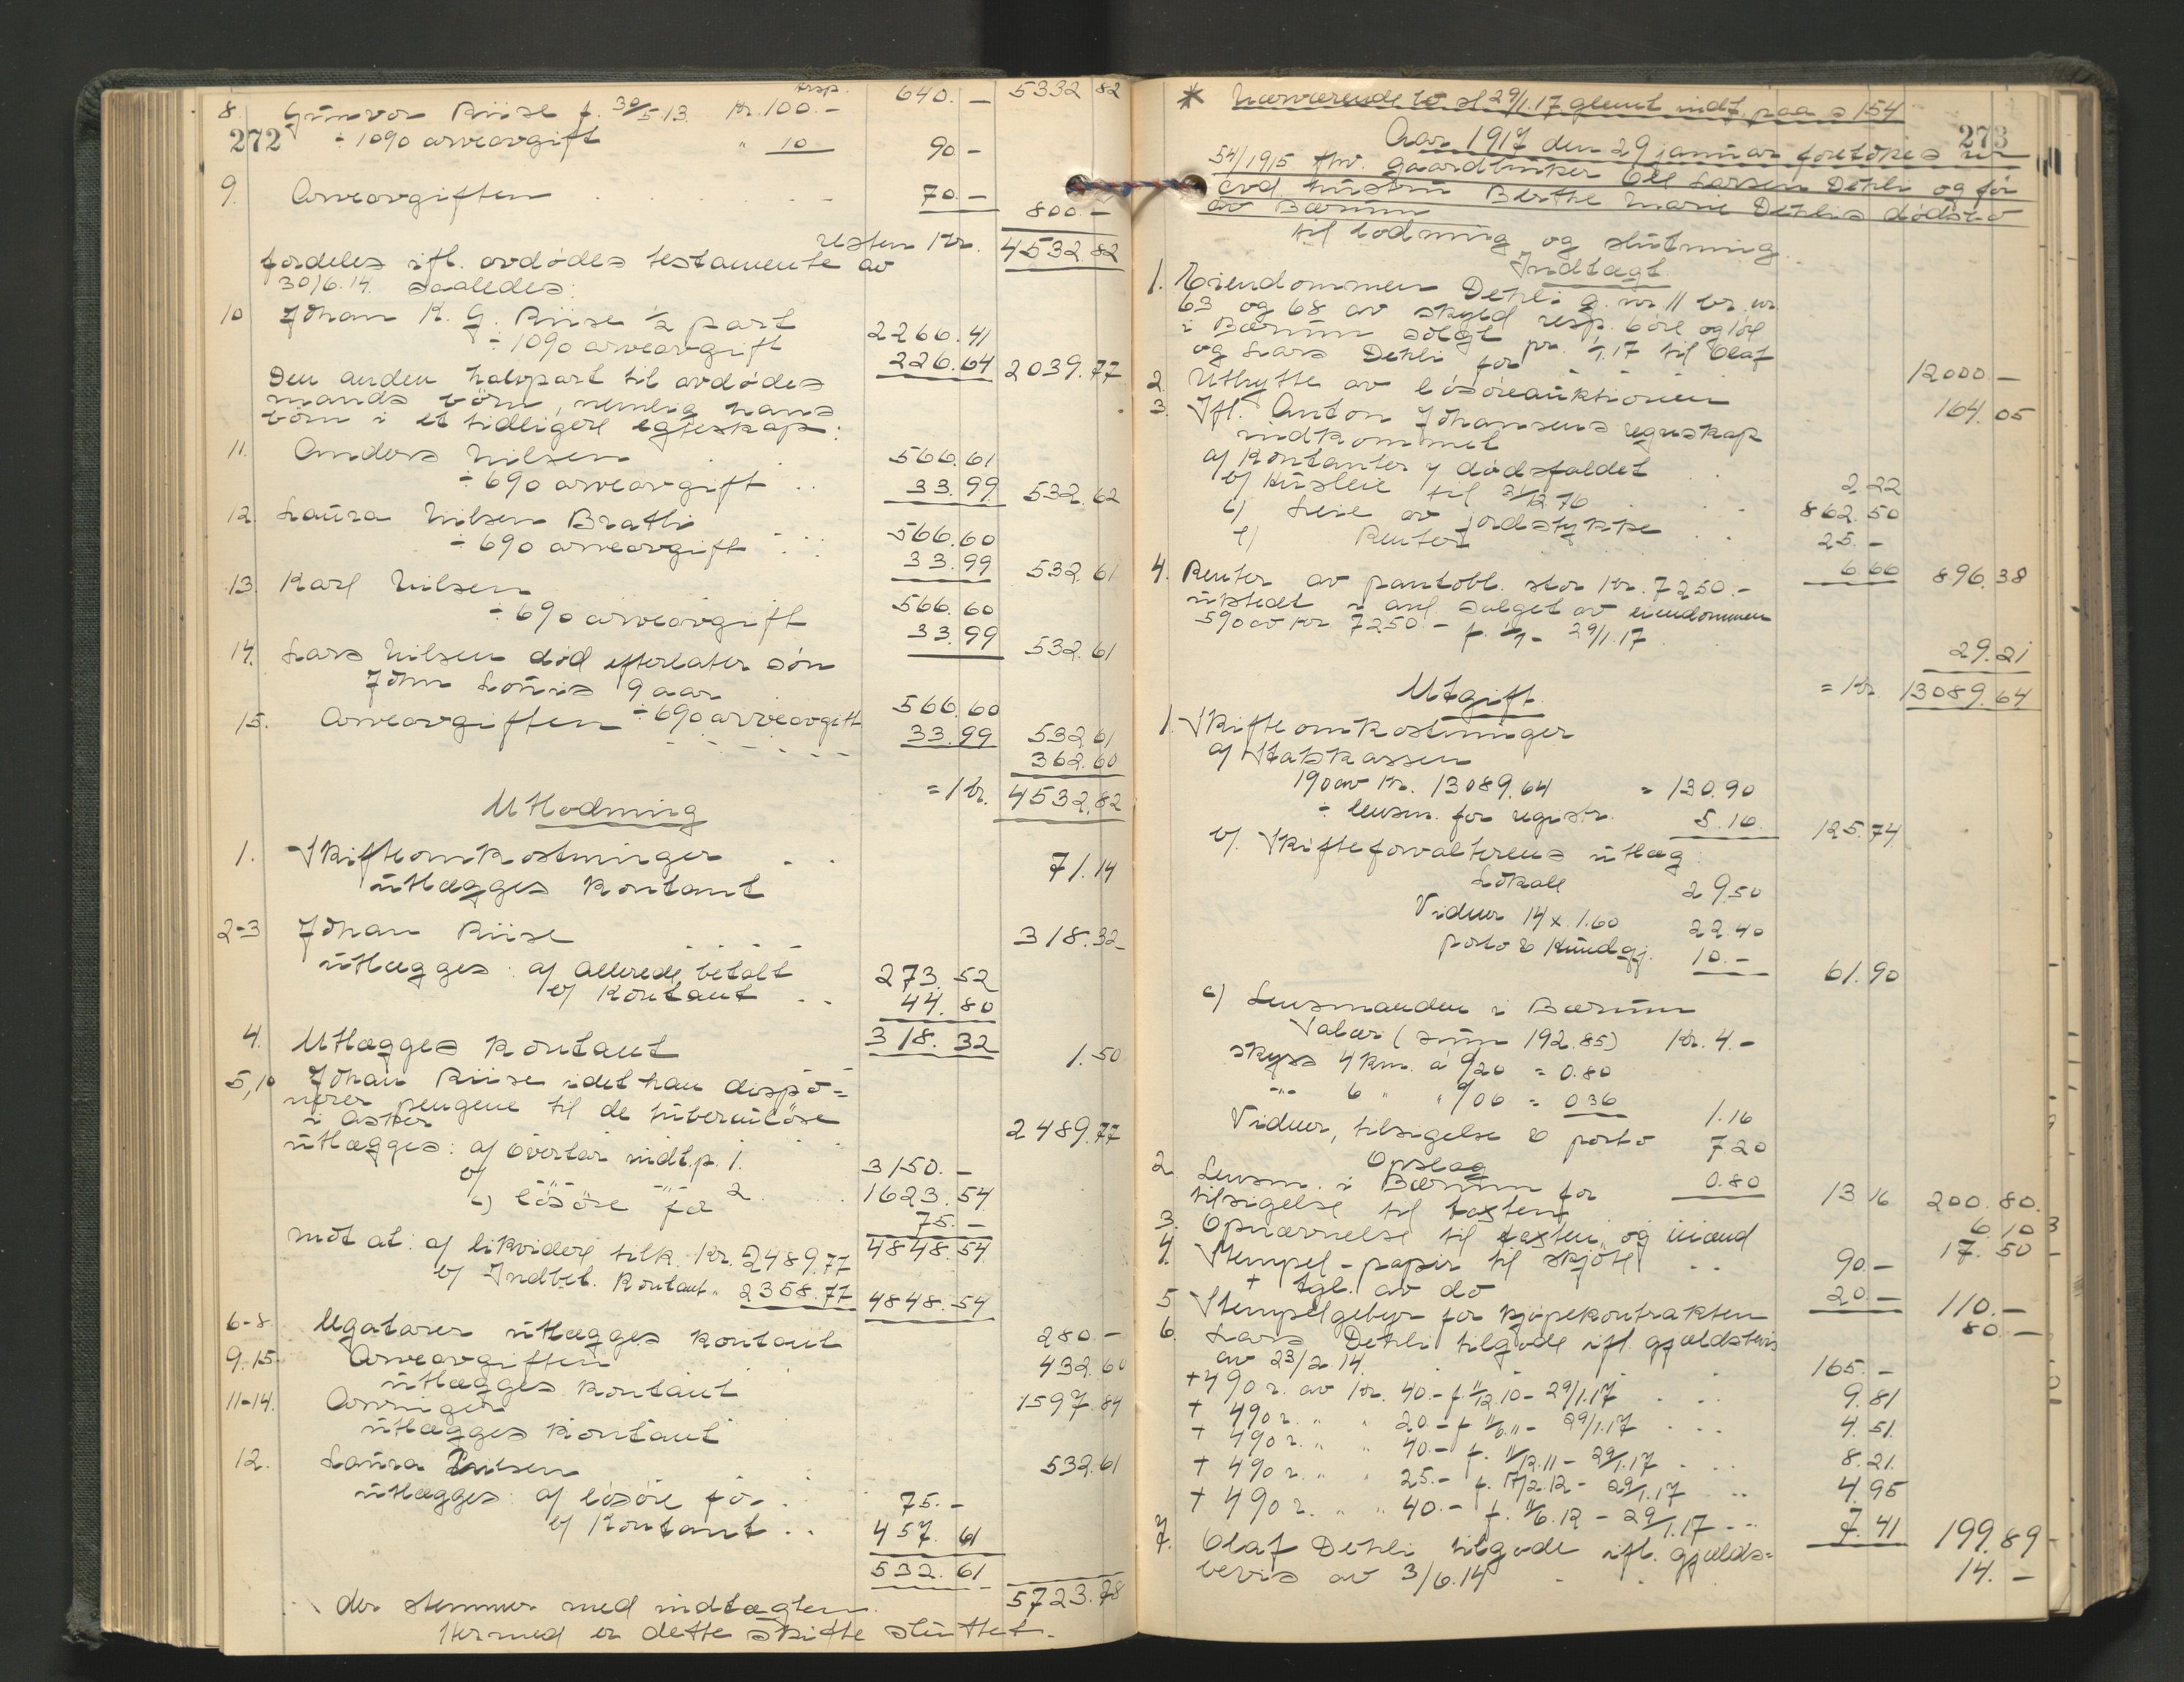 trsp. 640.- 5332 82
8. Gunvor Riise f. 30/5.13. Kr. 100.-
272 ÷ 10% arveavgift " 10 90 -
9. Arveavgiften 70.- 800.-
resten Kr. 4532.82
fordeles ifl. avdødes testamente av
30/6.14. saaledes:
10 Johan K. G. Riise ½ part 2266.41
÷ 10% arveavgift 226.64 2039.77
Den anden halvpart til avdødes
mands børn, nemlig hans
børn i et tidligere egteskap:
11. Anders Nilsen 566.61
÷ 6% arveavgift 33.99 532.62
12. Laura Nilsen Bratli 566.60
÷ 6% arveavgift 33.99 532.61
13. Karl Nilsen 566.60
÷ 6% arveavgift 33.99 532.61
14. Lars Nilsen død efterlater søn
John Louis 9 aar 566.60
÷ 6% arveavgift 33.99 532.61
15. Arveavgiften 362.60
= Kr. 4532.82
Utlodning
1. Skifteomkostninger 71.14
utlægges kontant
2-3 Johan Riise 318.32
utlægges: a/ allerede betalt 273.52
b/ kontant 44.80
318.32
4. Utlægges kontant 1.50
5,10 Johan Riise idet han dispo=
nerer pengene til de tuberculøse
i Asker 2489.77
utlægges: a/ overtar indt.p. 1. 3150.-
b/ -"- -"- 2. 1623.54
c) løsøre for 75.-
4848.54
mot at: a/ likvidere tilk. Kr. 2489.77
b/ Indbet. kontant " 2358.77 4848.54
6-8 Legatarer utlægges kontant 280.-
9.15. Arveavgiften 432.60
utlægges kontant
11-14. Arvinger 1597.84
utlægges kontant
12. Laura Nilsen 532.61
utlægges: a/ løsøre for 75.-
b/ kontant 457.61
532.61
5723.78
der stemmer med indtægten.
Hermed er dette skifte sluttet.
* Nærværende bo sl 29/1.17 glemt indf. paa s 154
273
Aar 1917 den 29 januar foretokes nr
54/1915 fhv. gaardbruker Ole Larsen Dehli og før
avd. hustru Berthe Marie Dehlis dødsbo
av Bærum
til lodning og slutning.
Indtægt
1. Eiendommen Dehli g. nr. 11 br. nr
63 og 68 av skyld resp. 6 øre og 1 øre
i Bærum solgt pr. 1/1.17 til Olaf
og Lars Dehli for 12000.-
2. Utbytte av løsøreauktionen 164.05
3. Ifl. Anton Johansens regnskap
indkommet
a/ Kontanter v dødsfaldet 2.22
b/ Husleie til 31/12.16 862.50
c) Leie av jordstykke 25.-
e) Renter 6.66 896.38
4. Renter av pantobl. stor Kr. 7250.-
utstedt i anl. salget av eiendommen
5% av Kr 7250.- f. 1/1 - 29/1.17 29.21
= Kr. 13089.64
Utgift
1. Skifteomkostninger
a/ Statskassen
1% av Kr. 13089.64 = 130.90
÷ lensm. for registr. 5.16. 125.74
b/. Skifteforvalterens utlæg:
Lokale 29.50
Vidner 14 x 1.60 22.40
porto & kundgj. 10.- 61.90
c) Lensmanden i Bærum
Salær (sum 192.85) Kr. 4.-
skyss 4 km. à 0/20 = 0.80
-"- 6 " " 0/06 = 0.36 1.16
Vidner, tilsigelse & porto 7.20
Opslag 0.80 13.16 200.80.
2. Lensm. i Bærum for
tilsigelse til taxten 6.10
3. Opnævnelse til taxten, og mænd 17.50
4. Stempel-papir til skjøte 90.-
+ tgl. av do 20.- 110.-
5 Stempelgebyr for kjøpekontrakten 80.-
6. Lars Dehli tilgode ifl. gjældsbevis
av 23/2.14. 165.-
+ 4% r. av Kr. 40.- f. 11/12.10 - 29/1.17 9.81
+ 4% r. " " 20.- f. 11/6.11 - 29/1.17 4.51.
+ 4% r. " " 40.- f. 11/12.11 - 29/1.17 8.21.
+ 4% r. " " 25.- f. 17/2.12 - 29/1.17 4.95
+ 4% r. " " 40.- f. 11/6.12 - 29/1.17 7.41 199.89
7. Olaf Dehli tilgode ifl. gjælds=
bevis av 3/6.14 14.-